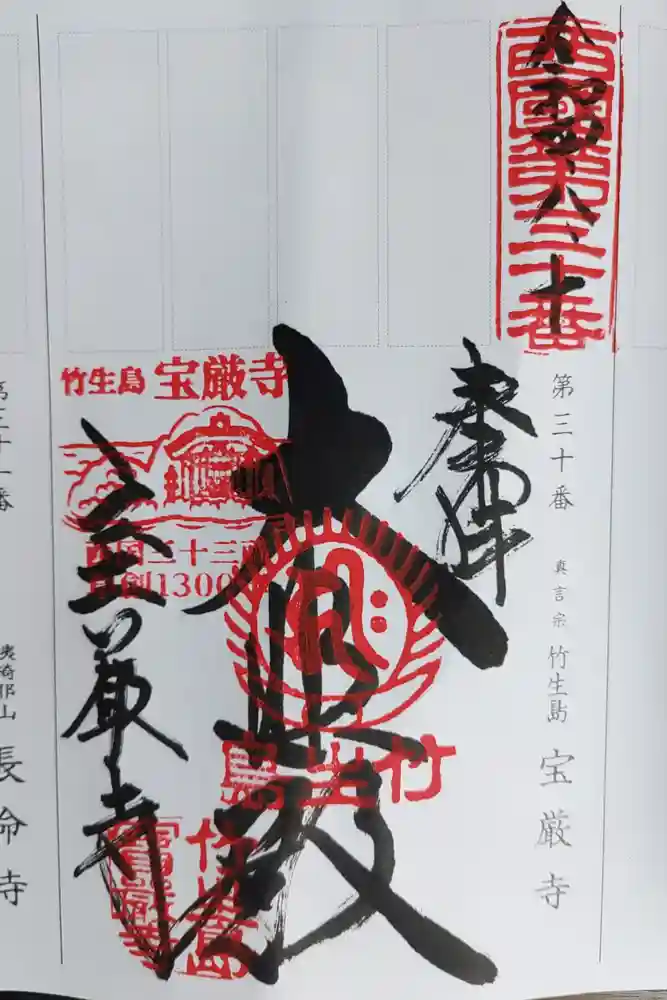 第三十番 真言宗 竹生島 宝厳寺
西國第三十番
令和四、八、十
奉拝
大悲殿
竹生島
宝厳寺
竹生島 宝厳寺
西国三十三所
草創1300年
竹生島
寳厳寺
第三十一番 姨綺耶山 長命寺